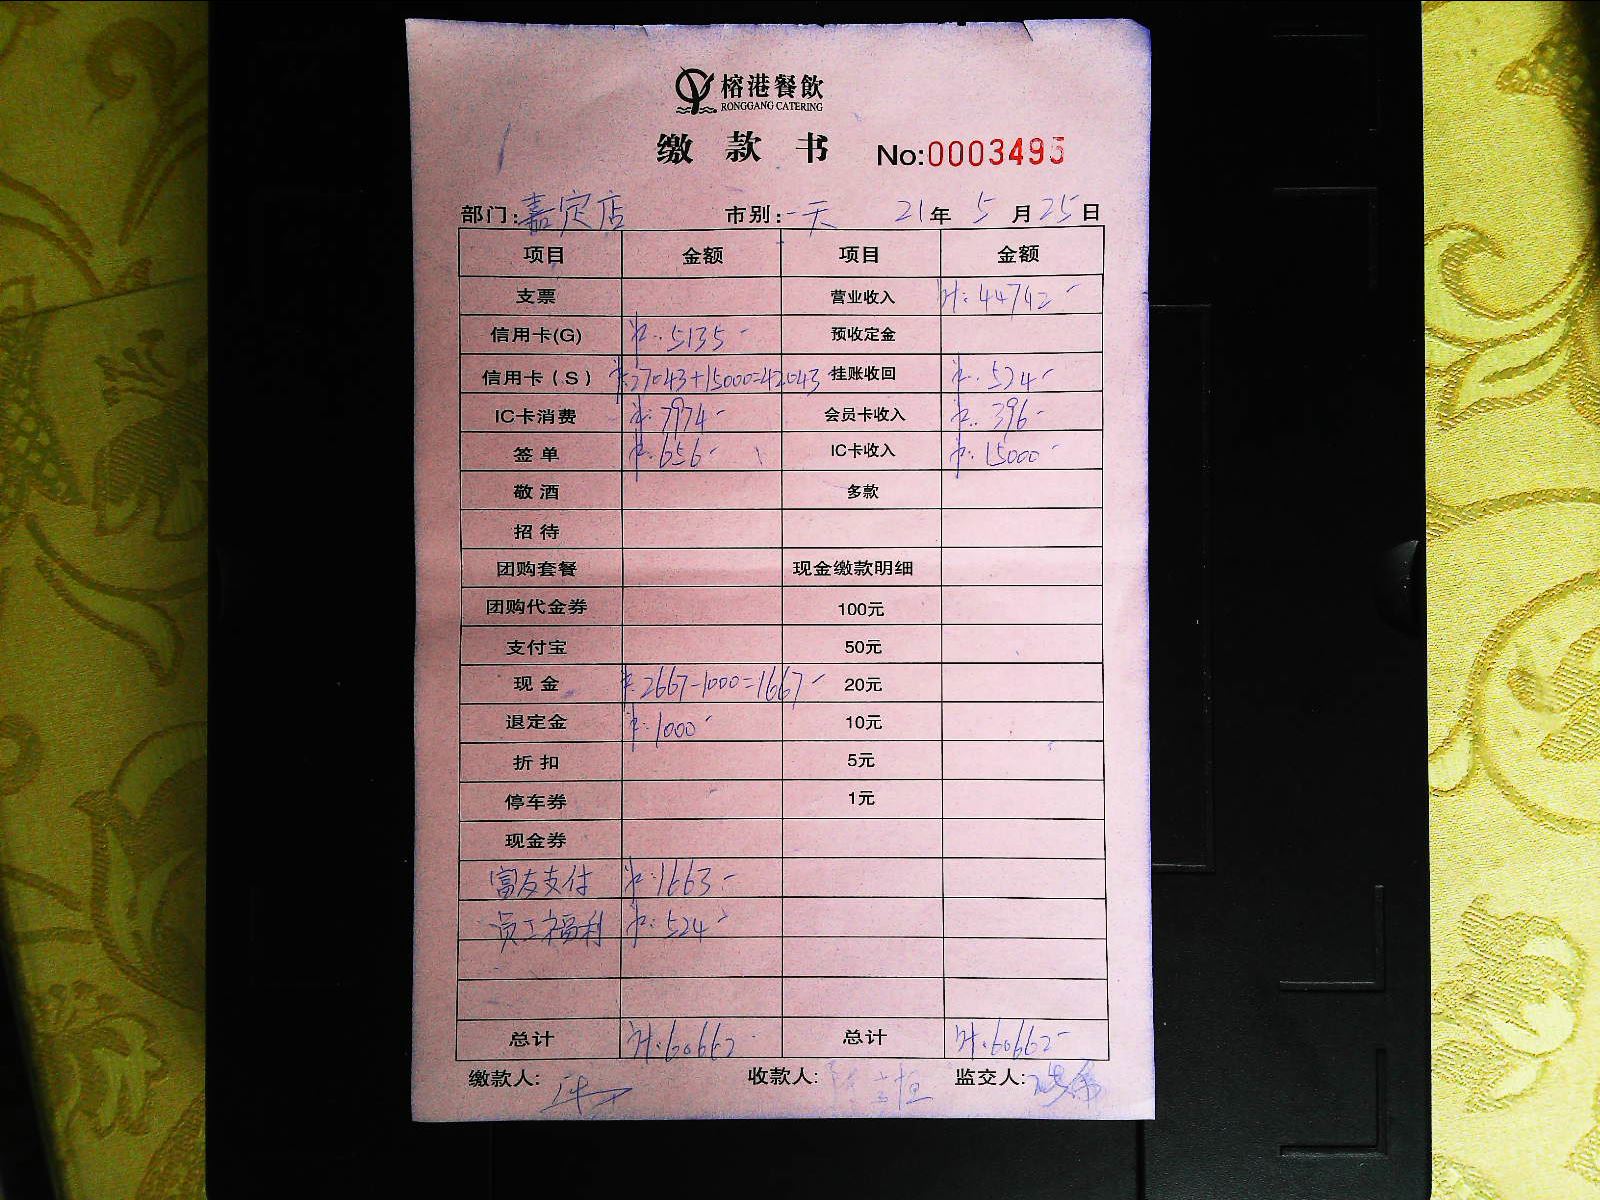 榕港餐飲
RONGGANG CATERING
缴 款 书 No:0003495
部门:嘉定店 市别:一天 21年 5月25日
项目 金额 项目 金额
支票 营业收入 计:44742-
信用卡(G) 计:5135- 预收定金
信用卡(S) 计:27043+15000=42043- 挂账收回 计:524-
IC卡消费 计:7974- 会员卡收入 计:396-
签单 计:656- IC卡收入 计:15000-
敬酒 多款
招待
团购套餐 现金缴款明细
团购代金券 100元
支付宝 50元
现金 计:2667-1000=1667- 20元
退定金 计:1000- 10元
折扣 5元
停车券 1元
现金券
富友支付 计:1663-
员工福利 计:524-
总计 计:60662- 总计 计:60662-
缴款人: 收款人: 监交人: